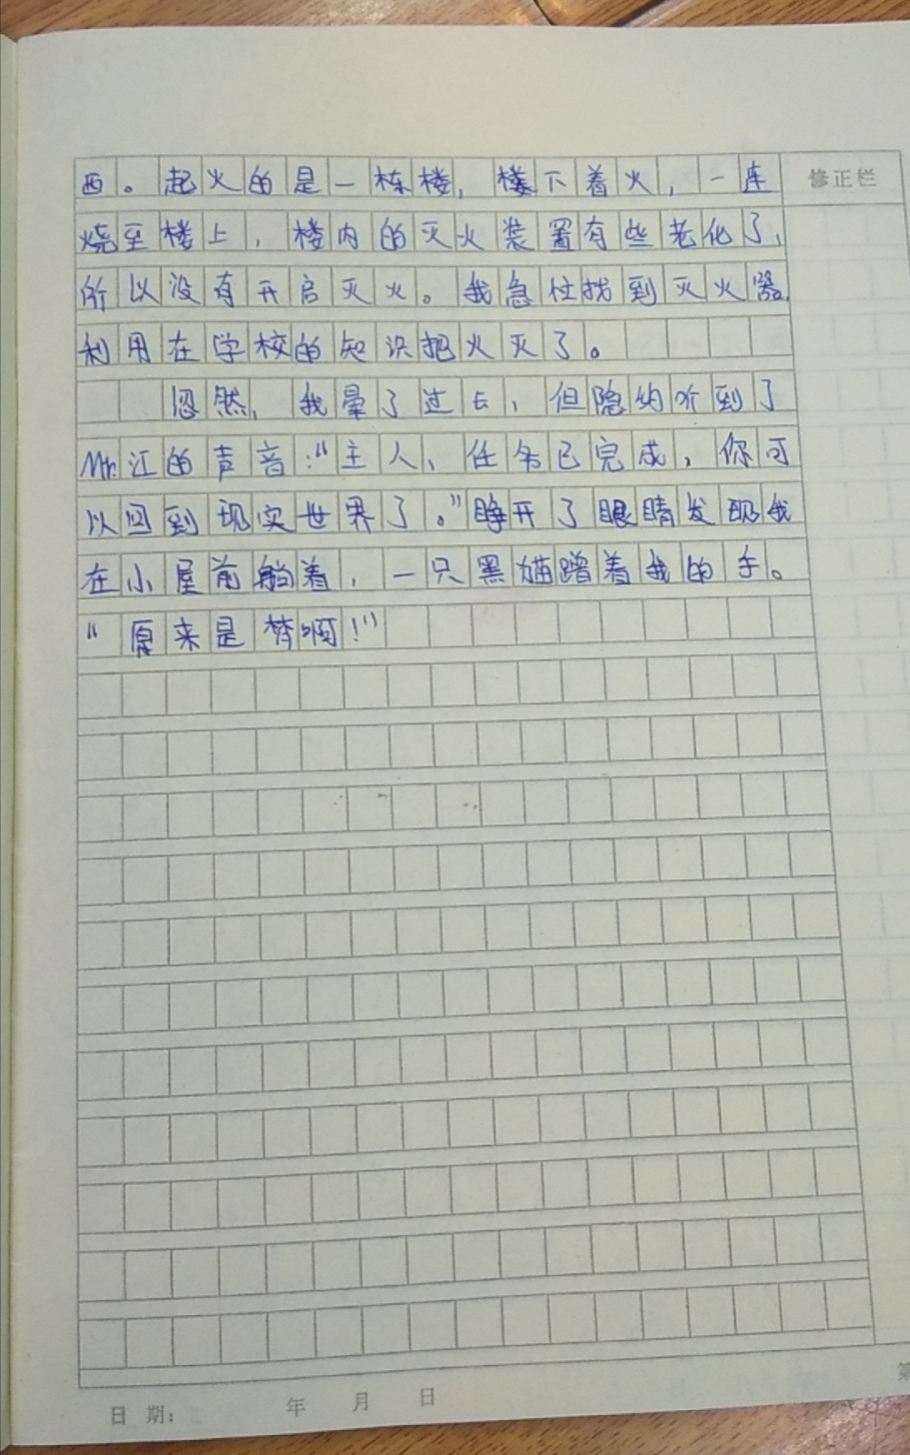 西。起火的是一栋楼，楼下着火，一连
修正栏
烧至楼上，楼内的灭火装置有些老化了，
所以没有开启灭火。我急忙找到灭火器
利用在学校的知识把火灭了。
忽然，我晕了过去，但隐约听到了
Mr.江的声音：“主人，任务已完成，你可
以回到现实世界了。”睁开了眼睛发现我
在小屋前躺着，一只黑猫蹭着我的手。
“原来是梦啊！”
日 期： 年 月 日
第